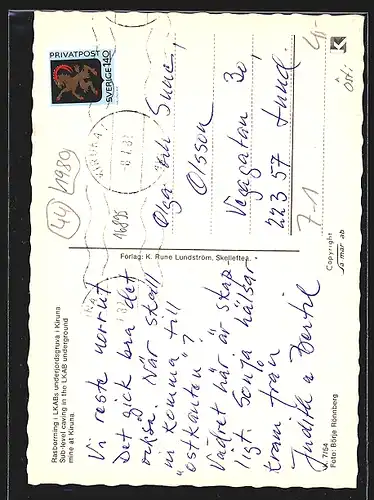 Rasbrytning i LKABs underjordsgruva i Kiruna
Sub-level caving in the LKAB underground
mine at Kiruna
Vi reste norrut
Det gick bra det
också. När skall
ni komma till
"östkanten"?
Vädret här är skap-
ligt. Sonja hälsar
Kram från
Judith o Bertil
K. 7/64
Foto: Börje Rönnberg
Förlag: K. Rune Lundström, Skellefteå
PRIVATPOST
SVERIGE 140
KIRUNA
16895
44
1980
Olga och Sune,
Olsson
Vegagatan 30,
223 57 Lund.
7-1
Copyright
mar ab
4:-
K